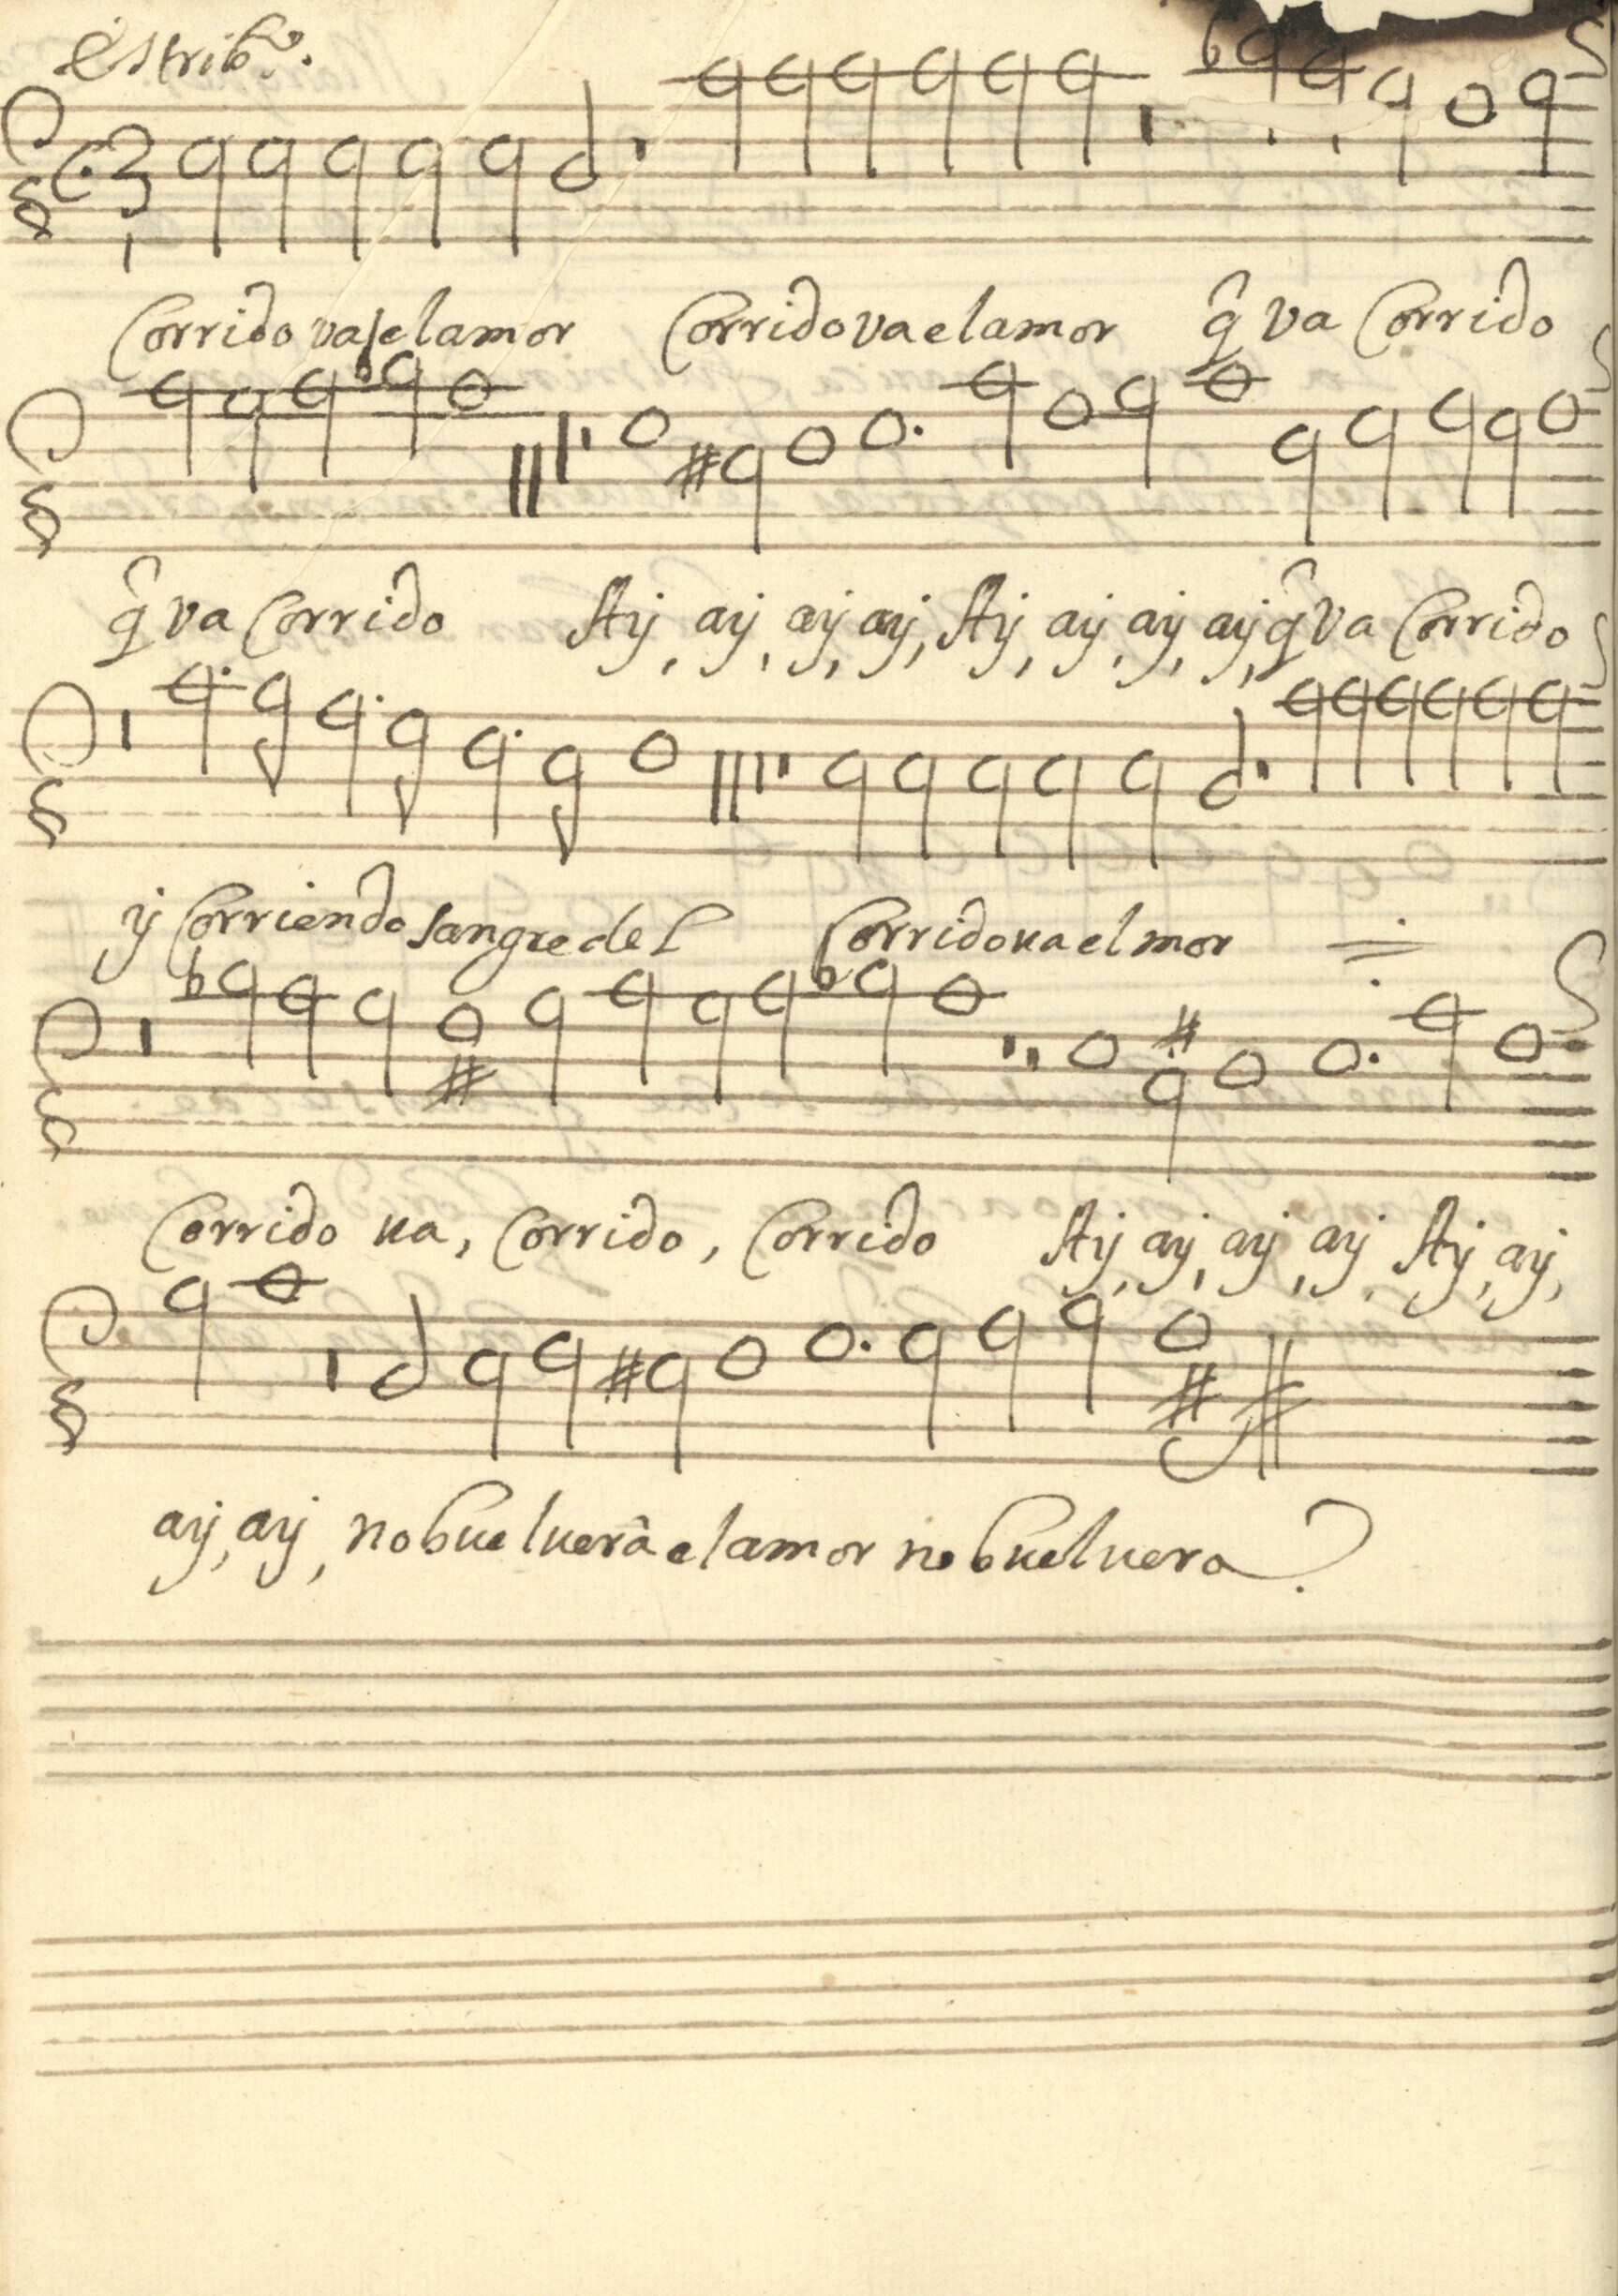 estribº.
Corrido va el amor Corrido va el amor q̂ va Corrido
q̂ va Corrido Ay, ay, ay, ay, Ay, ay, ay, ay, q̂ va Corrido
y Corriendo sangre del Corrido ua el mor
Corrido ua, Corrido, Corrido Ay, ay, ay, ay Ay, ay,
ay, ay, no bueluerà el amor no bueluera